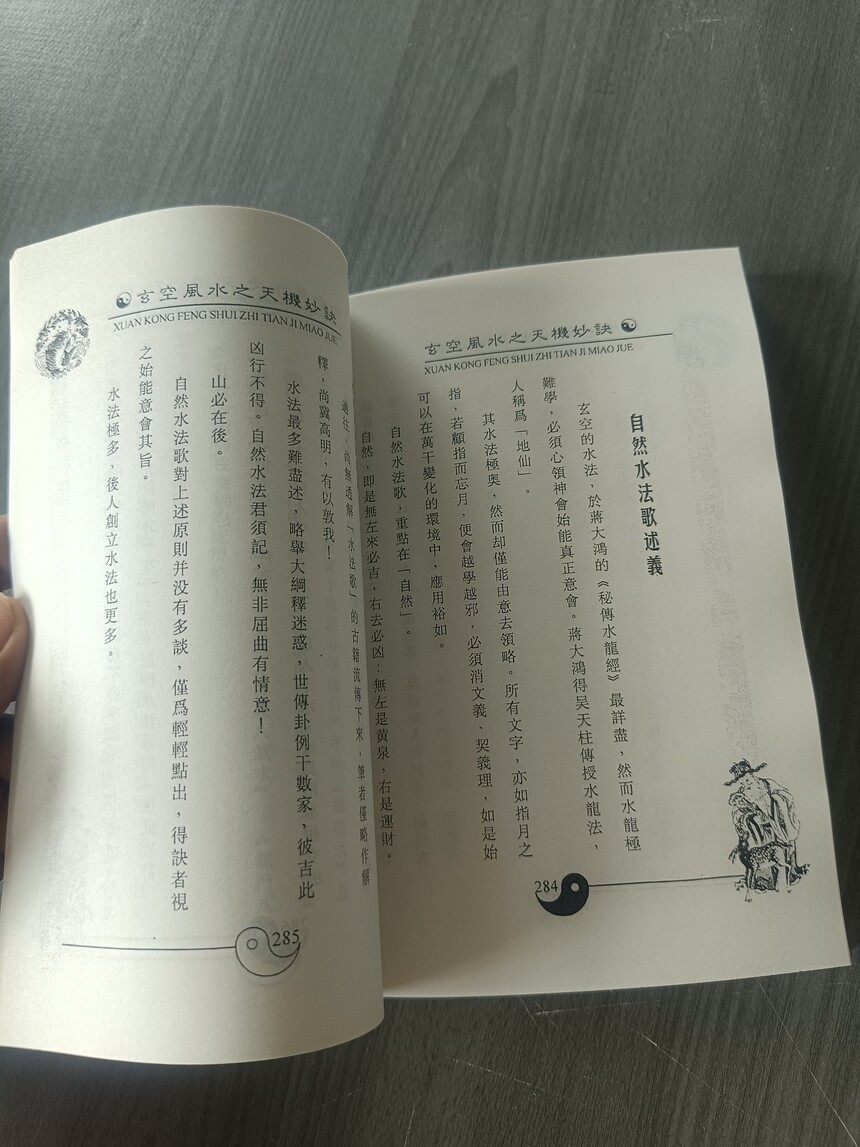 玄空風水之天機妙訣
XUAN KONG FENG SHUI ZHI TIAN JI MIAO JUE
自然水法歌述義
玄空的水法，於蔣大鴻的《秘傳水龍經》最詳盡，然而水龍極
難學，必須心領神會始能真正意會。蔣大鴻得吴天柱傳授水龍法，
人稱爲「地仙」。
其水法極奧，然而却僅能由意去領略。所有文字，亦如指月之
指，若顧指而忘月，便會越學越邪，必須消文義、契義理，如是始
可以在萬千變化的環境中，應用裕如。
自然水法歌，重點在「自然」。
自然，即是無左來必吉，右去必凶；無左是黄泉，右是運財。
284
玄空風水之天機妙訣
XUAN KONG FENG SHUI ZHI TIAN JI MIAO JUE
過往，尚無透解「水法歌」的古籍流傳下來，筆者僅略作解
釋，尚冀高明，有以教我！
水法最多難盡述，略舉大綱釋迷惑，世傳卦例千數家，彼吉此
凶行不得。自然水法君須記，無非屈曲有情意！
山必在後。
自然水法歌對上述原則并没有多談，僅爲輕輕點出，得訣者視
之始能意會其旨。
水法極多，後人創立水法也更多。
285